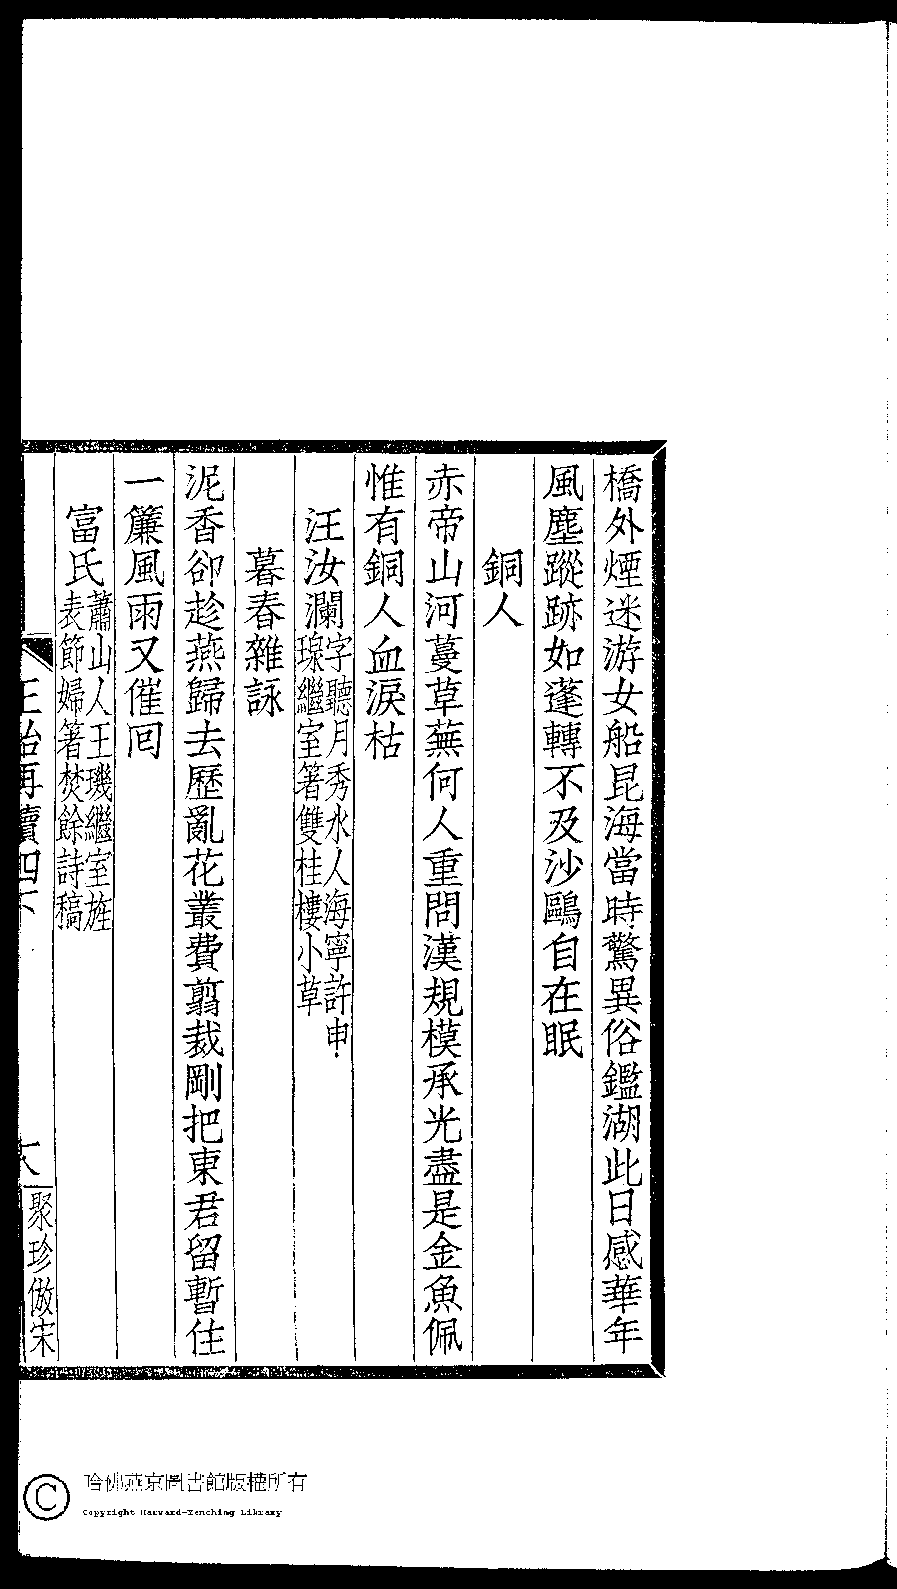 橋外煙迷游女船昆海當時驚異俗鑑湖此日感華年
風塵蹤跡如蓬轉不及沙鷗自在眠
銅人
赤帝山河蔓草蕪何人重問漢規模承光盡是金魚佩
惟有銅人血淚枯
汪汝瀾字聽月秀水人海寧許申
瑔繼室箸雙桂樓小草
暮春雜詠
泥香卻趁燕歸去歷亂花叢費翦裁剛把東君留暫住
一簾風雨又催回
富氏蕭山人王璣繼室旌
表節婦箸焚餘詩稿
再續四下
聚珍倣宋
哈佛燕京圖書館版權所有
Copyright Harvard-Yenching Library